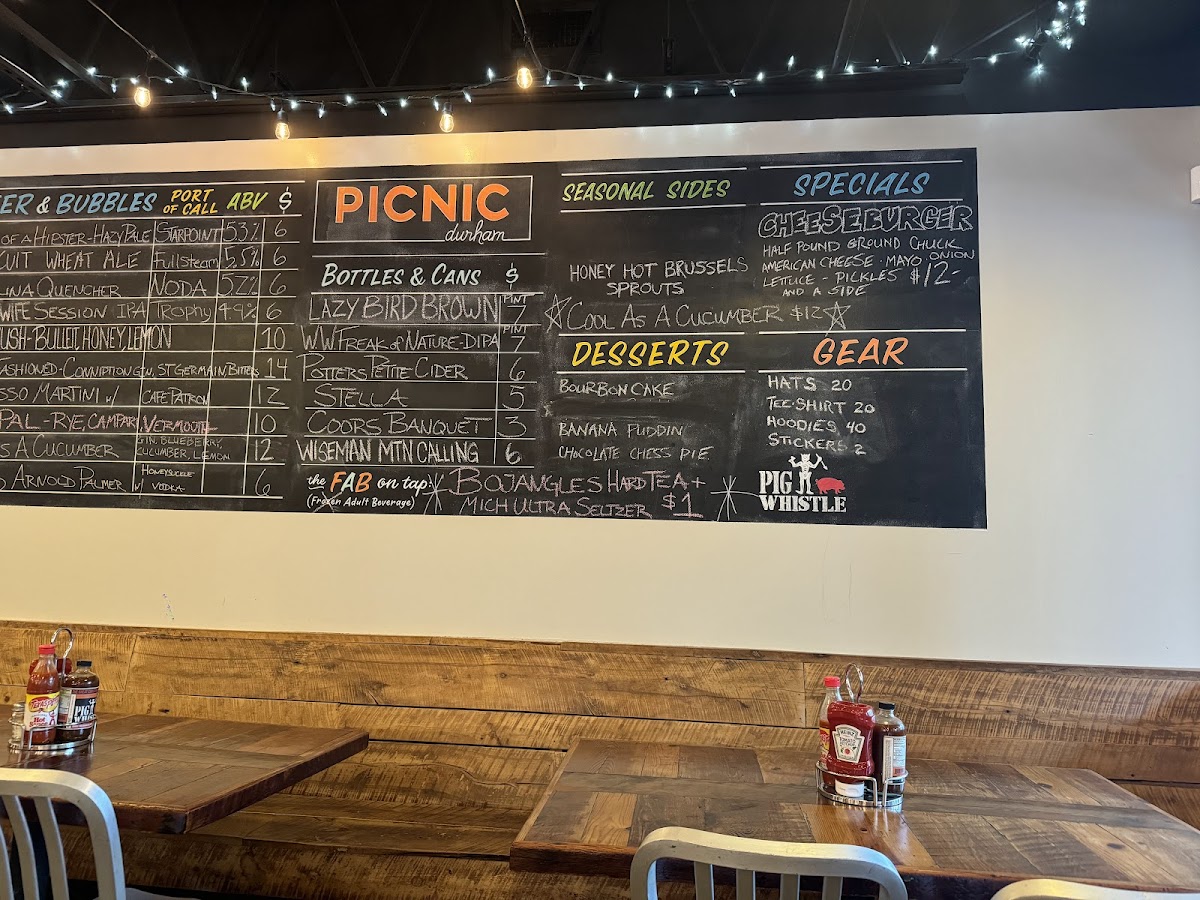 ER & BUBBLES PORT OF CALL ABV $
OF A HIPSTER-HAZY PALE STARPOINT 5.3% 6
CUIT WHEAT ALE Fullsteam 5.5% 6
LINA QUENCHER NODA 5.2% 6
WIFE SESSION IPA Trophy 4.9% 6
USH-BULLEIT, HONEY, LEMON 10
ASHIONED-CONNIPTION GIN, ST GERMAIN, BITTERS 14
SSO MARTINI w/ CAFE PATRON 12
PAL-RYE, CAMPARI, VERMOUTH 10
S A CUCUMBER GIN, BLUEBERRY, CUCUMBER, LEMON 12
D ARNOLD PALMER w/ HONEYSUCKLE VODKA 6
PICNIC
durham
BOTTLES & CANS $
LAZY BIRD BROWN PINT 7
WW FREAK of NATURE-DIPA PINT 7
POTTERS PETITE CIDER 6
STELLA 5
COORS BANQUET 3
WISEMAN MTN CALLING 6
the FAB on tap:
(Frozen Adult Beverage)
BOJANGLES HARD TEA +
MICH ULTRA SELTZER $1
SEASONAL SIDES
HONEY HOT BRUSSELS
SPROUTS
COOL AS A CUCUMBER $12
DESSERTS
BOURBON CAKE
BANANA PUDDIN
CHOCOLATE CHESS PIE
SPECIALS
CHEESEBURGER
HALF POUND GROUND CHUCK
AMERICAN CHEESE · MAYO ONION
LETTUCE - PICKLES $12-
AND A SIDE
GEAR
HATS 20
TEE-SHIRT 20
HOODIES 40
STICKERS 2
PIG
WHISTLE
Texas Pete
Hot
PIG
WHISTLE
HEINZ
TOMATO
KETCHUP